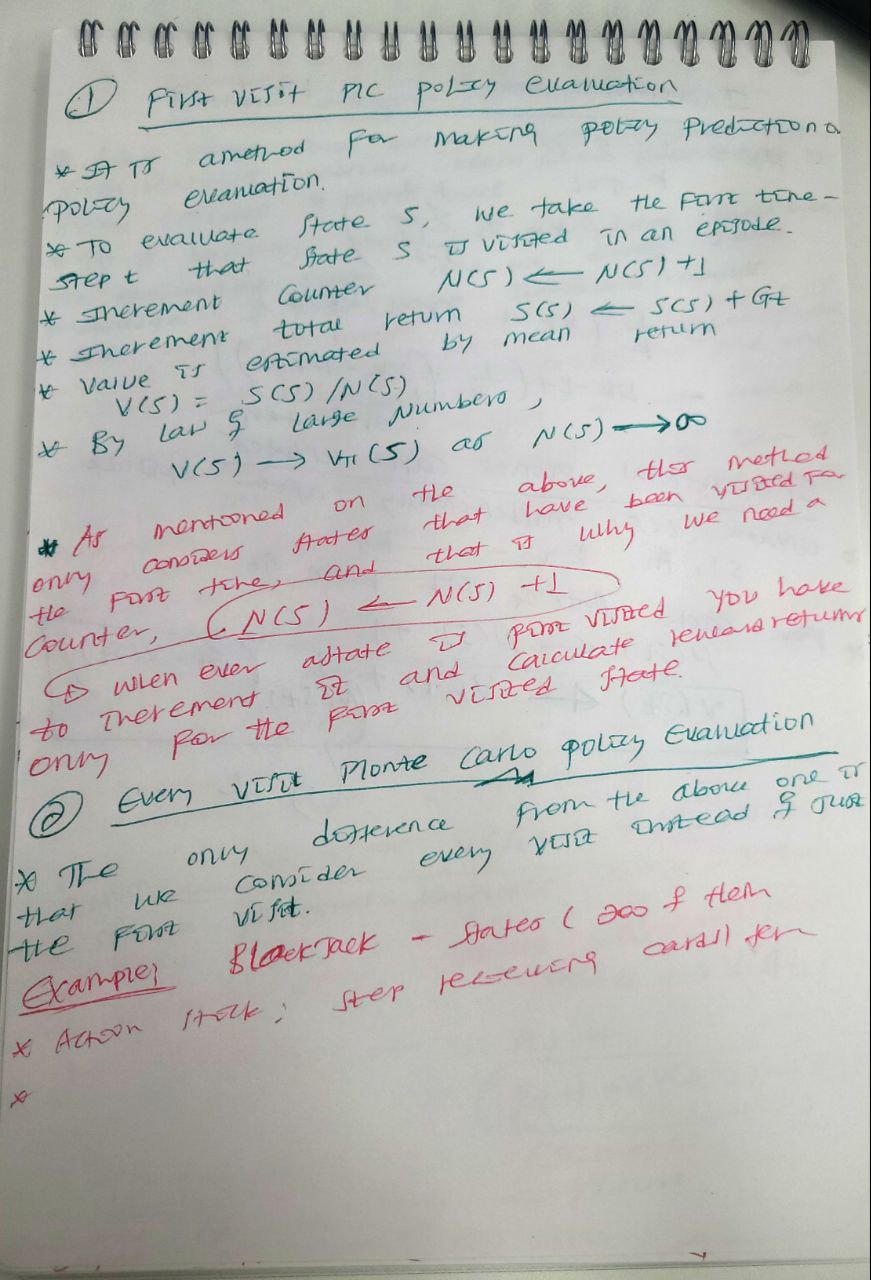 ① First visit MC policy evaluation
* It is a method for making policy prediction or
policy evaluation.
* To evaluate state s, we take the first time-
step t that state s is visited in an episode.
* Increment counter N(s) ← N(s) +1
* Increment total return S(s) ← S(s) + Gt
* Value is estimated by mean return
V(s) = S(s) /N(s)
* By law of large numbers,
V(s) → Vπ(s) as N(s) → ∞
* As mentioned on the above, this method
only considers states that have been visited for
the first time, and that is why we need a
counter, N(s) ← N(s) +1
↳ when ever a state is first visited you have
to increment it and calculate reward returns
only for the first visited state.
② Every visit Monte Carlo policy Evaluation
* The only difference from the above one is
that we consider every visit instead of just
the first visit.
Example: BlackJack - states (200 of them
* Action stick: stop receiving cards)
*